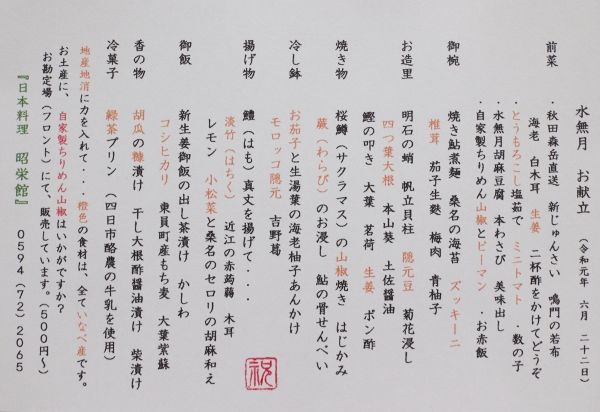 水無月 お献立 (令和元年 六月 二十二日)
前菜 ・秋田森岳直送 新じゅんさい 鳴門の若布
海老 白木耳 生姜 二杯酢をかけてどうぞ
・とうもろこし塩茹で ・ミニトマト ・数の子
・水無月胡麻豆腐 本わさび 美味出し
・自家製ちりめん山椒とピーマン ・お赤飯
御椀 焼き鮎煮麺 桑名の海苔 ズッキーニ
椎茸 茄子生麩 梅肉 青柚子
お造里 明石の蛸 帆立貝柱 隠元豆 菊花浸し
四つ葉大根 本山葵 土佐醤油
鰹の叩き 大葉 茗荷 生姜 ポン酢
焼き物 桜鱒(サクラマス)の山椒焼き はじかみ
蕨(わらび)のお浸し 鮎の骨せんべい
冷し鉢 お茄子と生湯葉の海老柚子あんかけ
モロッコ隠元 吉野葛
揚げ物 鱧(はも)真丈を揚げて・・・
淡竹(はちく) 近江の赤蒟蒻 木耳
レモン 小松菜と桑名のセロリの胡麻和え
御飯 新生姜御飯の出し茶漬け かしわ
コシヒカリ 東員町産もち麦 大葉紫蘇
香の物 胡瓜の糠漬け 干し大根酢醤油漬け 柴漬け
冷菓子 緑茶プリン (四日市酪農の牛乳を使用)
地産地消に力を入れて・・・橙色の食材は、全ていなべ産です。
お土産に、自家製ちりめん山椒はいかがですか?
お勘定場(フロント)にて、販売しています。(500円~)
『日本料理 昭栄館』 0594(72)2065
祝